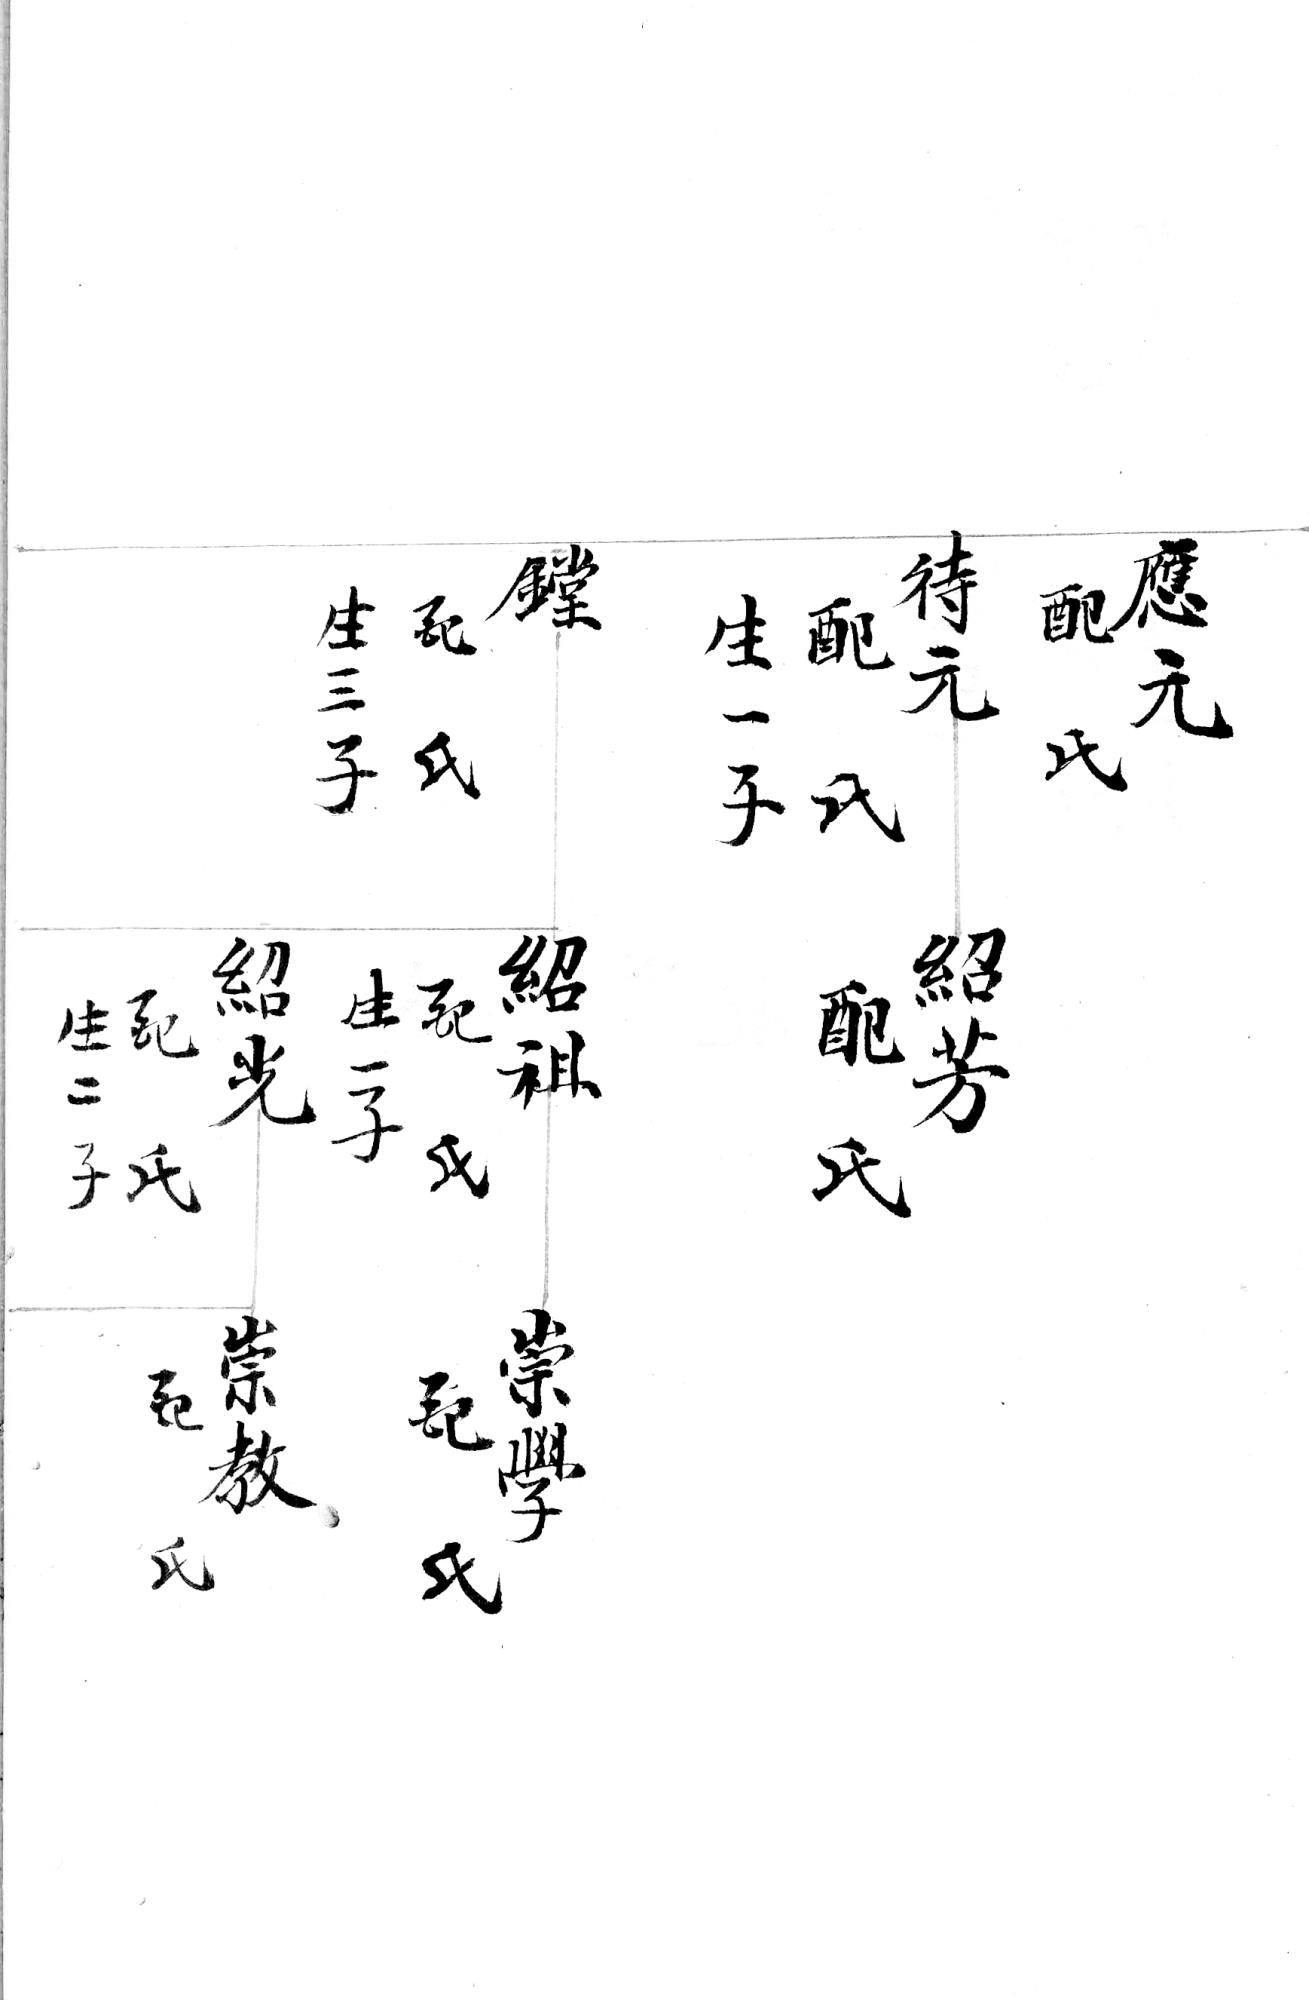 應元
配 氏
待元
配 氏
生一子
鏜
配 氏
生三子
紹芳
配 氏
紹祖
配 氏
生一子
紹光
配 氏
生二子
崇學
配 氏
崇教
配 氏